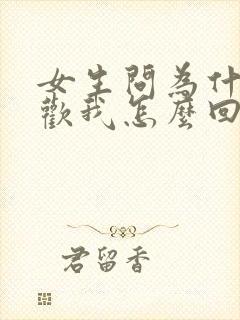 女生問為什
歡我怎麼回
君留香